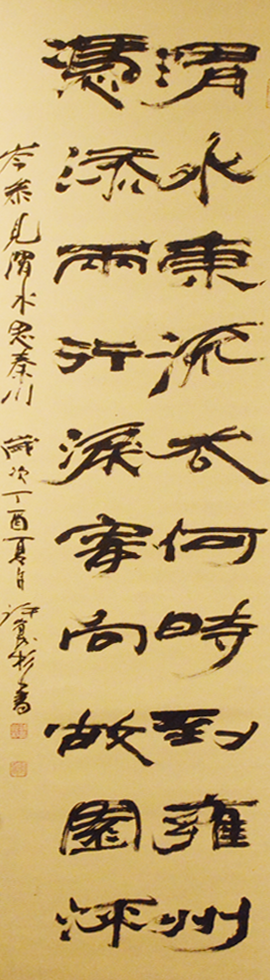 渭水東流去何時到雍州
憑添兩行淚寄向故園流
岑參見渭水思秦川 歲次丁酉夏月許書